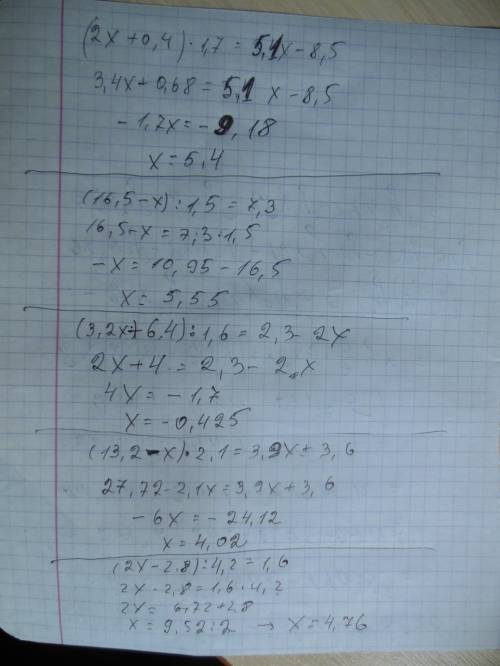 (2x+0,4)·1,7=5,1x-8,5
3,4x+0,68=5,1 x-8,5
-1,7x=-9,18
x=5,4
(16,5-x):1,5=7,3
16,5-x=7,3·1,5
-x=10,95-16,5
x=5,55
(3,2x+6,4):1,6=2,3-2x
2x+4=2,3-2x
4x=-1,7
x=-0,425
(13,2-x)·2,1=3,9x+3,6
27,72-2,1x=3,9x+3,6
-6x=-24,12
x=4,02
(2x-2,8):4,2=1,6
2x-2,8=1,6·4,2
2x=6,72+2,8
x=9,52:2 → x=4,76